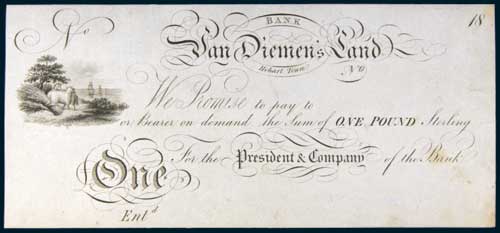 BANK
18
No
Van Diemen's Land
Hobart Town
No
We Promise to pay to
or Bearer on demand the Sum of ONE POUND Sterling
One For the President & Company of the Bank
Entd